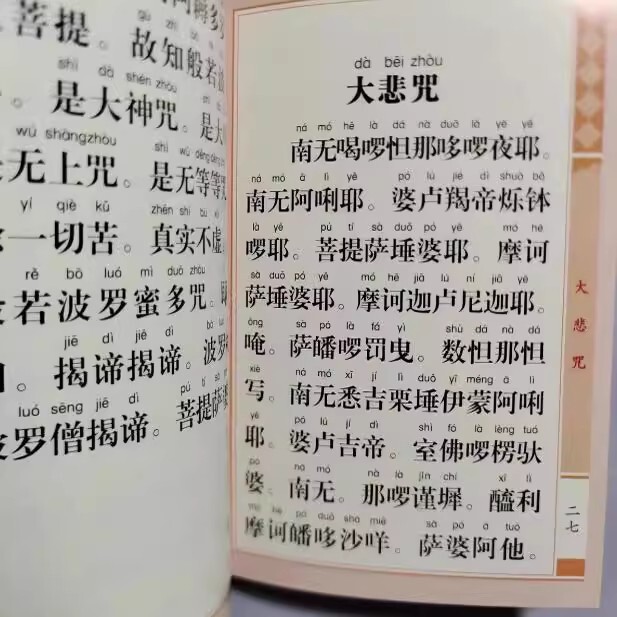 阿耨多
菩提。故知般若
shì dà shén zhòu
是大神咒。是大
wú shàngzhòu shì wú děng děng
无上咒。是无等等咒
yí qiè kǔ zhēn shí bù xū
一切苦。真实不虚
rě bō luó mì duō zhòu
若波罗蜜多咒。
jiē dì jiē dì
揭谛揭谛。波罗
luó sēng jiē dì pú tí sà
罗僧揭谛。菩提萨
dà bēi zhòu
大悲咒
ná mó hē là dá nà duō là yè yē
南无喝啰怛那哆啰夜耶。
ná mó ā lì yē pó lú jié dì shuò bō
南无阿唎耶。婆卢羯帝烁钵
là yē pú tí sà duǒ pó yē mó hē
啰耶。菩提萨埵婆耶。摩诃
sà duǒ pó yē mó hē jiā lú ní jiā yē
萨埵婆耶。摩诃迦卢尼迦耶。
ōng sà pó là fá yì shù dá nà dá
唵。萨皤啰罚曳。数怛那怛
xiě ná mó xī jí lì duǒ yī méng ā lì
写。南无悉吉栗埵伊蒙阿唎
yē pó lú jí dì shì fó là léng tuó
耶。婆卢吉帝。室佛啰楞驮
pó ná mó nà là jǐn chí xī lì
婆。南无。那啰谨墀。醯利
mó hē pó duō shā miē sà pó ā tuō
摩诃皤哆沙咩。萨婆阿他。
大悲咒
二七